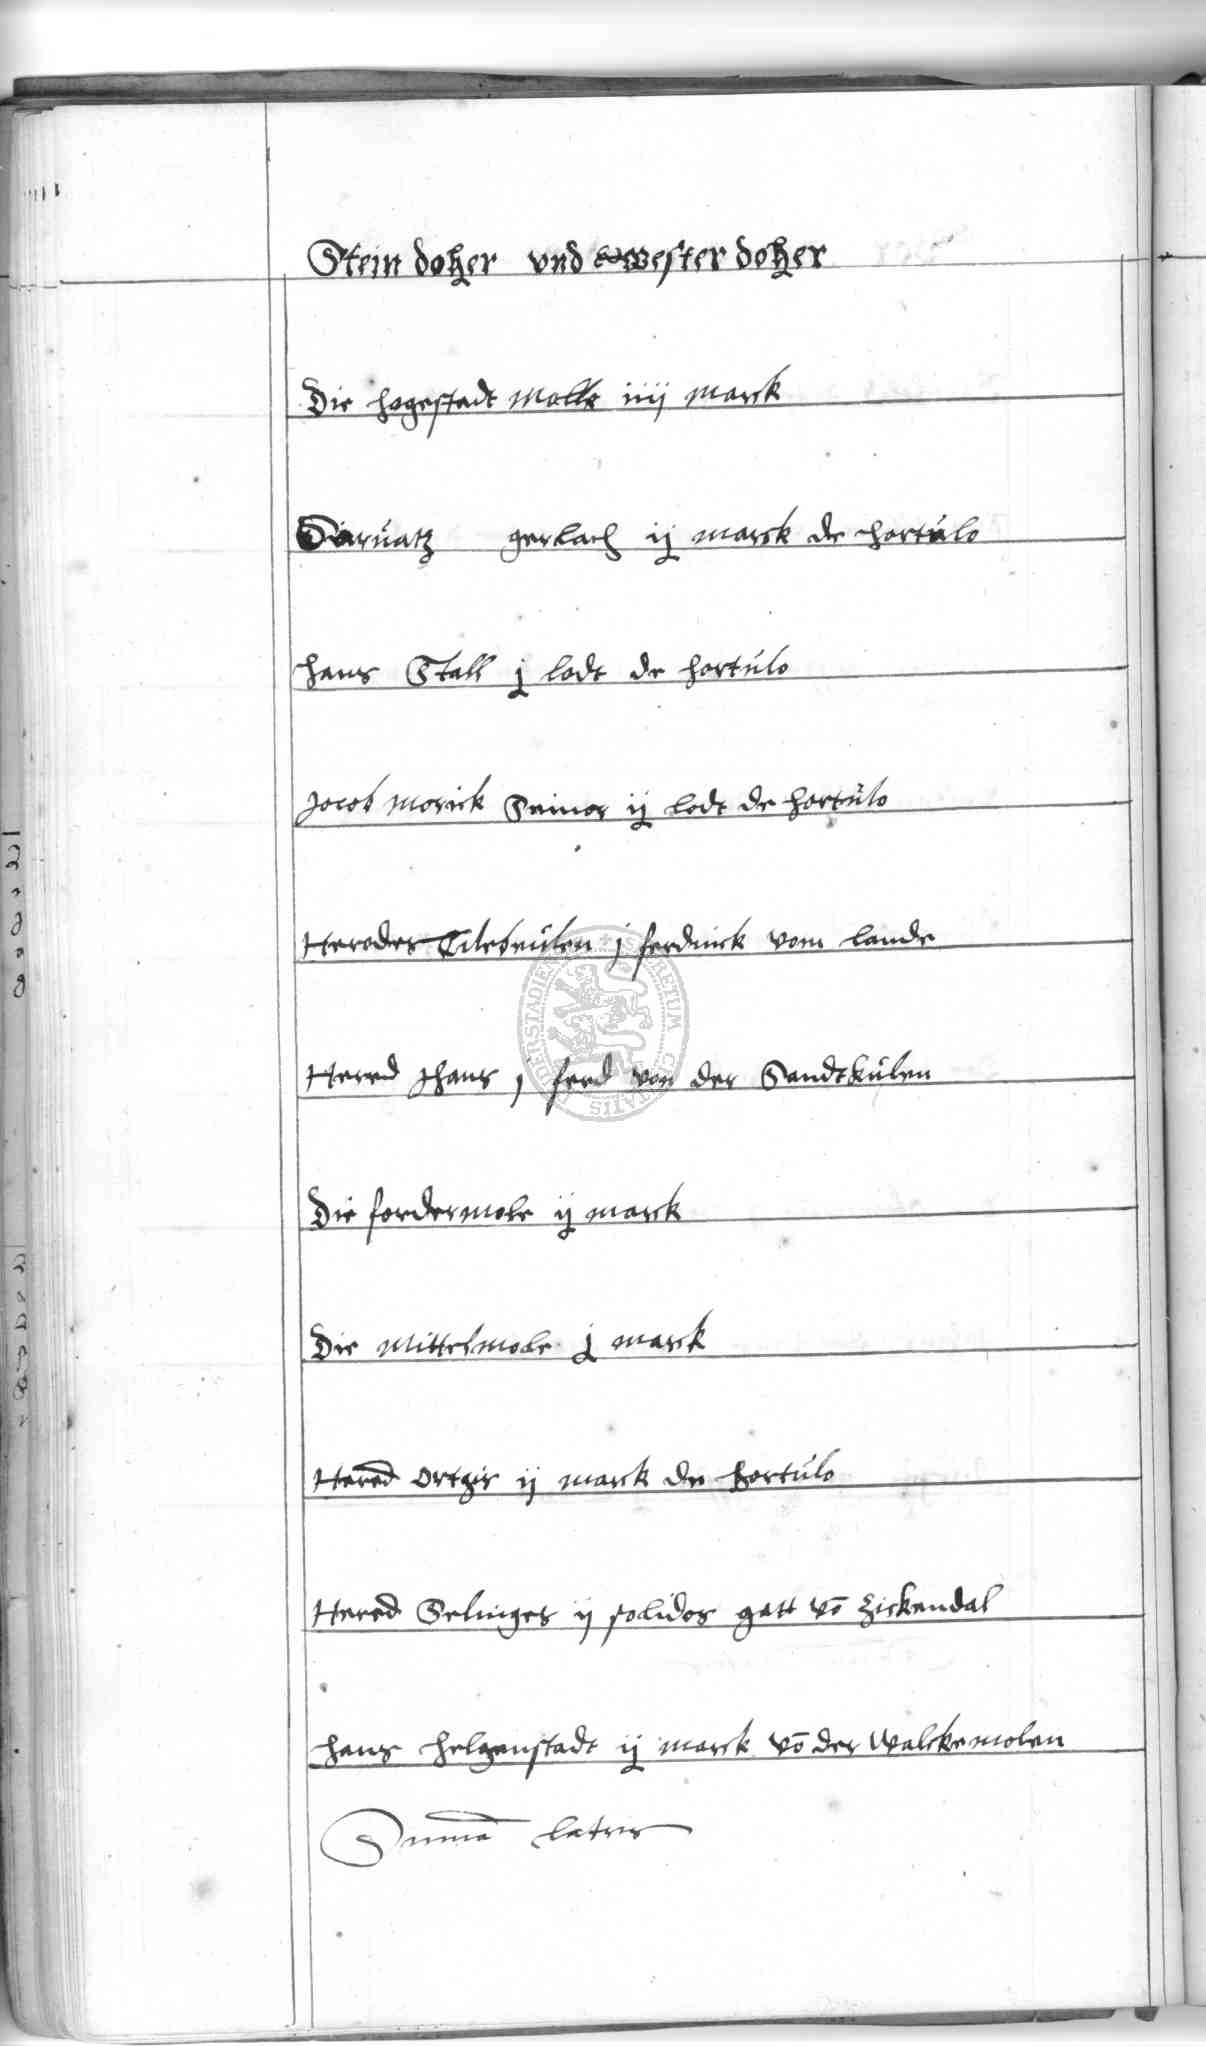 Stein doher vnd Wester doher
Die hogestadt Molle iiij marck
Servatz gerlach ij marck de hortulo
hans Stall j lodt de hortulo
Jacob Morick Senior ij lodt de hortulo
Heredes Tilebeulen j ferdinck vom lande
Hered Jhans j ferd von der Sandtkulen
Die fordermole ij marck
Die Mittelmole j marck
Hered Ortgis ij marck de hortulo
Hered Selinges ij solidos gatt vō Zickendal
hans helgenstadt ij marck vō der Walckemolen
Summa lateris